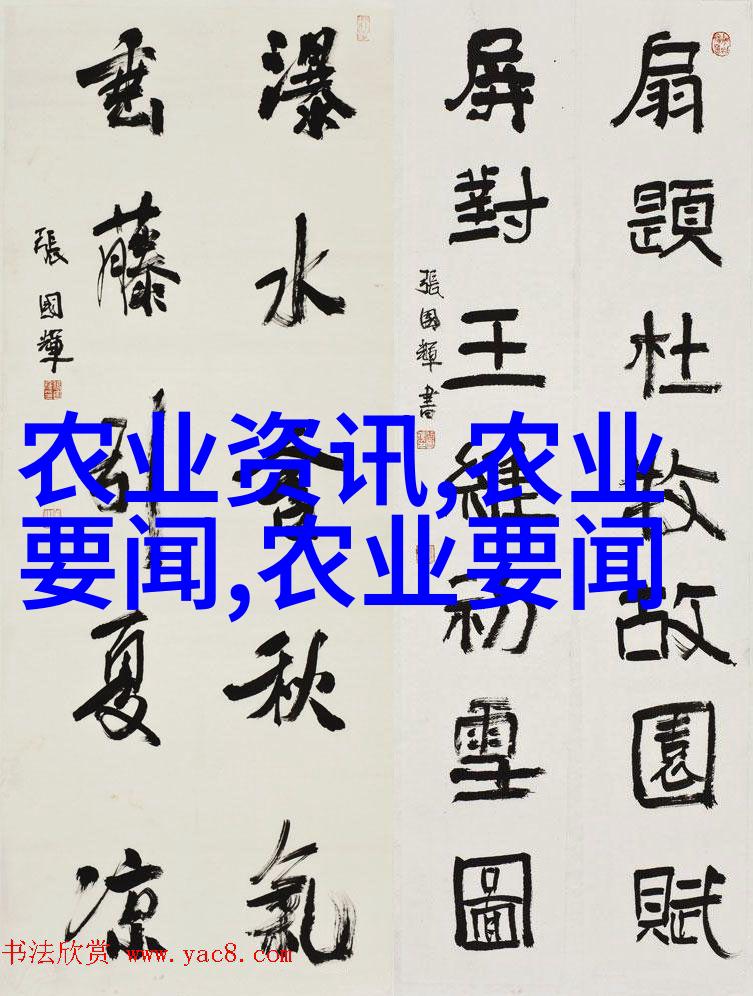 扇題杜牧故園賦
屏對王維初雪圖
張國輝書
瀑水含秋氣
垂藤引夏凉
張國輝
农业资讯,农业
要闻,农业要闻
书法欣赏 www.yac8.com